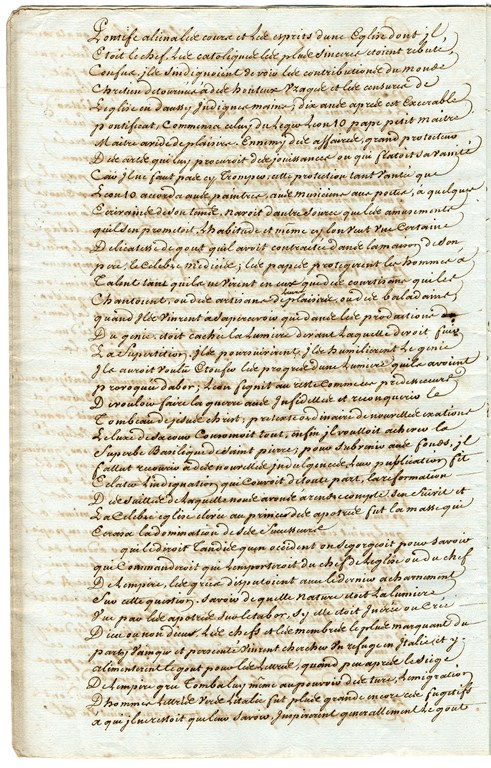 Pontife aliena les cœurs et les esprits dune Eglise dont jl,
Etoit le chef. Les catoliques les plus sinceres etoient rebuté,
Confus, jls sindignoient de voir les contributions du monde
Chretien detournées à des honteux Usages et les censures de
Leglise en daussy Indignes mains; dix ans aprés cet execrable
pontificat, Commença celuy du Legér Leon 10 pape petit maitre,
Maitre avide de plaisirs. Ennemy des affaires, grand protecteur
Des arts qui luy procuroit des jouissances ou qui flatoit sa vanité
Car jl ne faut pas sy Tromper, cette protection tant vantée que
Leon 10 accorda aux peintres, aux musiciens aux poëtes, à quelques
Ecrivains de son tems, n'avoit dautre source que les amusements
qu'il s'en promettoit, L'habitude et même si lon veut Une Certaine
Delicatesse de gout quil avoit contractée dans la maison de son
pere, le celebre medicis; les papes protegerent les hommes à
Talent tant qu'ils ne Virent en eux que des courtisans qui les
Chantoient, ou des artisans de leurs plaisirs, ou des baladains,
quand jls Vinrent à sapercevoir que dans les productions
Du genie, etoit cachée la Lumiere devant Laquelle devoit fuir
La Superstition, jls poursuivirent, jls humilierent Le genie
jls auroit voulu Etoufer les progrés d'une Lumiere qu'ils avoient
provoqués d'abord, Leon feignit au reste Comme ses predecesseurs
De vouloir faire la guerre aux Infidelles et reconquerir le
Tombeau de jesus christ, pretexte ordinaire de nouvelles exations
Le luxe de sa cour Consommoit tout, enfin jl vouloit achever la
Superbe Basilique de saint pierre, pour subvenir aux fonds, jl
fallut recourir à des nouvelles indulgences, Leur publication fit
Eclater L'indignation qui Couvoit de toute part, la reformation
Des suittes de Laquelle nous avons à rendre compte s'en suivit et
La Celebre eglise elevée au prince des apotres fut la masse qui
Ecrasa la domination de ses Successeurs
qui le diroit tandis qu'en occident on segorgeoit pour savoir
qui Commanderoit qui Lemporteroit du chef de Leglise ou du chef
De Lempire, les grecs disputoient avec le dernier acharnement
Sur cette question, savoir de quelle nature etoit La lumiere,
Vue par les apotres sur le tabor, sy elle etoit Increée ou Creé
Dieu ou non dieu. Les chefs et les membres le plus marquant du
party Vaincu et persecuté Vinrent chercher Un refuge en Italie et y
alimenterent Le gout pour les Lettres, quand peu aprés le siege
De Lempire grec Tomba luy même au pouvoir des turcs, Lemigration
Dhommes Lettrés Vers Litalie fut plus grande encore ces fugitifs
à qui jl ne restoit que leur savoir, Inspirerent generallement Le gout